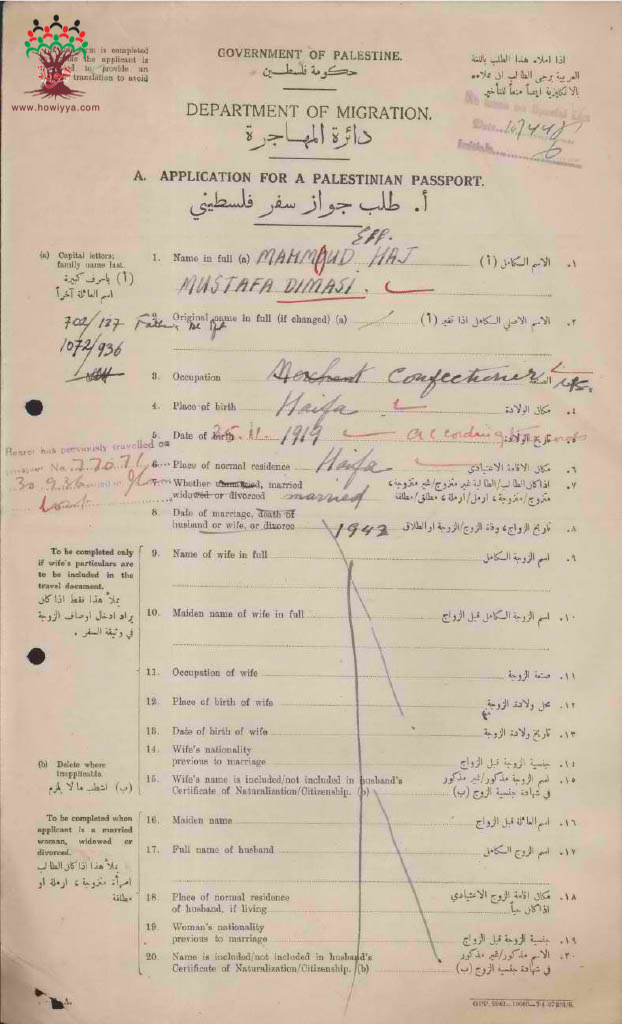 www.howiyya.com
form is completed
the applicant is
to provide an
translation to avoid
GOVERNMENT OF PALESTINE.
حكومة فلسطين
اذا املاء هذا الطلب باللغة
العربية يرجى الطالب ان يملاءه
بالانكليزية ايضاً منعاً للتأخير
DEPARTMENT OF MIGRATION.
دائرة المهاجرة
Date
Initials
A. APPLICATION FOR A PALESTINIAN PASSPORT.
أ. طلب جواز سفر فلسطيني
(a) Capital letters; family name last.
(أ) باحرف كبيرة
اسم العائلة آخراً
1. Name in full (a) MAHMOUD HAJ الاسم الكامل (أ) ١.
MUSTAFA DIMASI.
2. Original name in full (if changed) (a) الاسم الاصلي الكامل اذا تغير (أ) ٢.
702/137
1072/936
3. Occupation Merchant Confectioner
4. Place of birth Haifa مكان الولادة ٤.
5. Date of birth 25.11.1919 according to تاريخ الولادة ٥.
Bearer has previously travelled on
No. 77071
30.9.36
6. Place of normal residence Haifa مكان الاقامة الاعتيادي ٦.
7. Whether unmarried, married اذا كان الطالب/الطالبة غير متزوج/غير متزوجة، ٧.
widowed or divorced married متزوج/متزوجة، ارمل/ارملة، مطلق/مطلقة
8. Date of marriage, death of
husband or wife, or divorce 1942 تاريخ الزواج، وفاة الزوج/الزوجة او الطلاق ٨.
To be completed only
if wife's particulars are
to be included in the
travel document.
يملأ هذا فقط اذا كان
يراد ادخال اوصاف الزوجة
في وثيقة السفر.
9. Name of wife in full اسم الزوجة الكامل ٩.
10. Maiden name of wife in full اسم الزوجة الكامل قبل الزواج ١٠.
11. Occupation of wife صنعة الزوجة ١١.
12. Place of birth of wife محل ولادة الزوجة ١٢.
13. Date of birth of wife تاريخ ولادة الزوجة ١٣.
14. Wife's nationality
previous to marriage جنسية الزوجة قبل الزواج ١٤.
(b) Delete where
inapplicable.
(ب) اشطب ما لا يلزم
15. Wife's name is included/not included in husband's اسم الزوجة مذكور/غير مذكور ١٥.
Certificate of Naturalization/Citizenship. (b) في شهادة جنسية الزوج (ب)
To be completed when
applicant is a married
woman, widowed or
divorced.
يملأ هذا اذا كان الطالب
امرأة متزوجة، ارملة او
مطلقة
16. Maiden name اسم العائلة قبل الزواج ١٦.
17. Full name of husband اسم الزوج الكامل ١٧.
18. Place of normal residence مكان اقامة الزوج الاعتيادي ١٨.
of husband, if living اذا كان حياً
19. Woman's nationality
previous to marriage جنسية الزوجة قبل الزواج ١٩.
20. Name is included/not included in husband's الاسم مذكور/غير مذكور ٢٠.
Certificate of Naturalization/Citizenship. (b) في شهادة جنسية الزوج (ب)